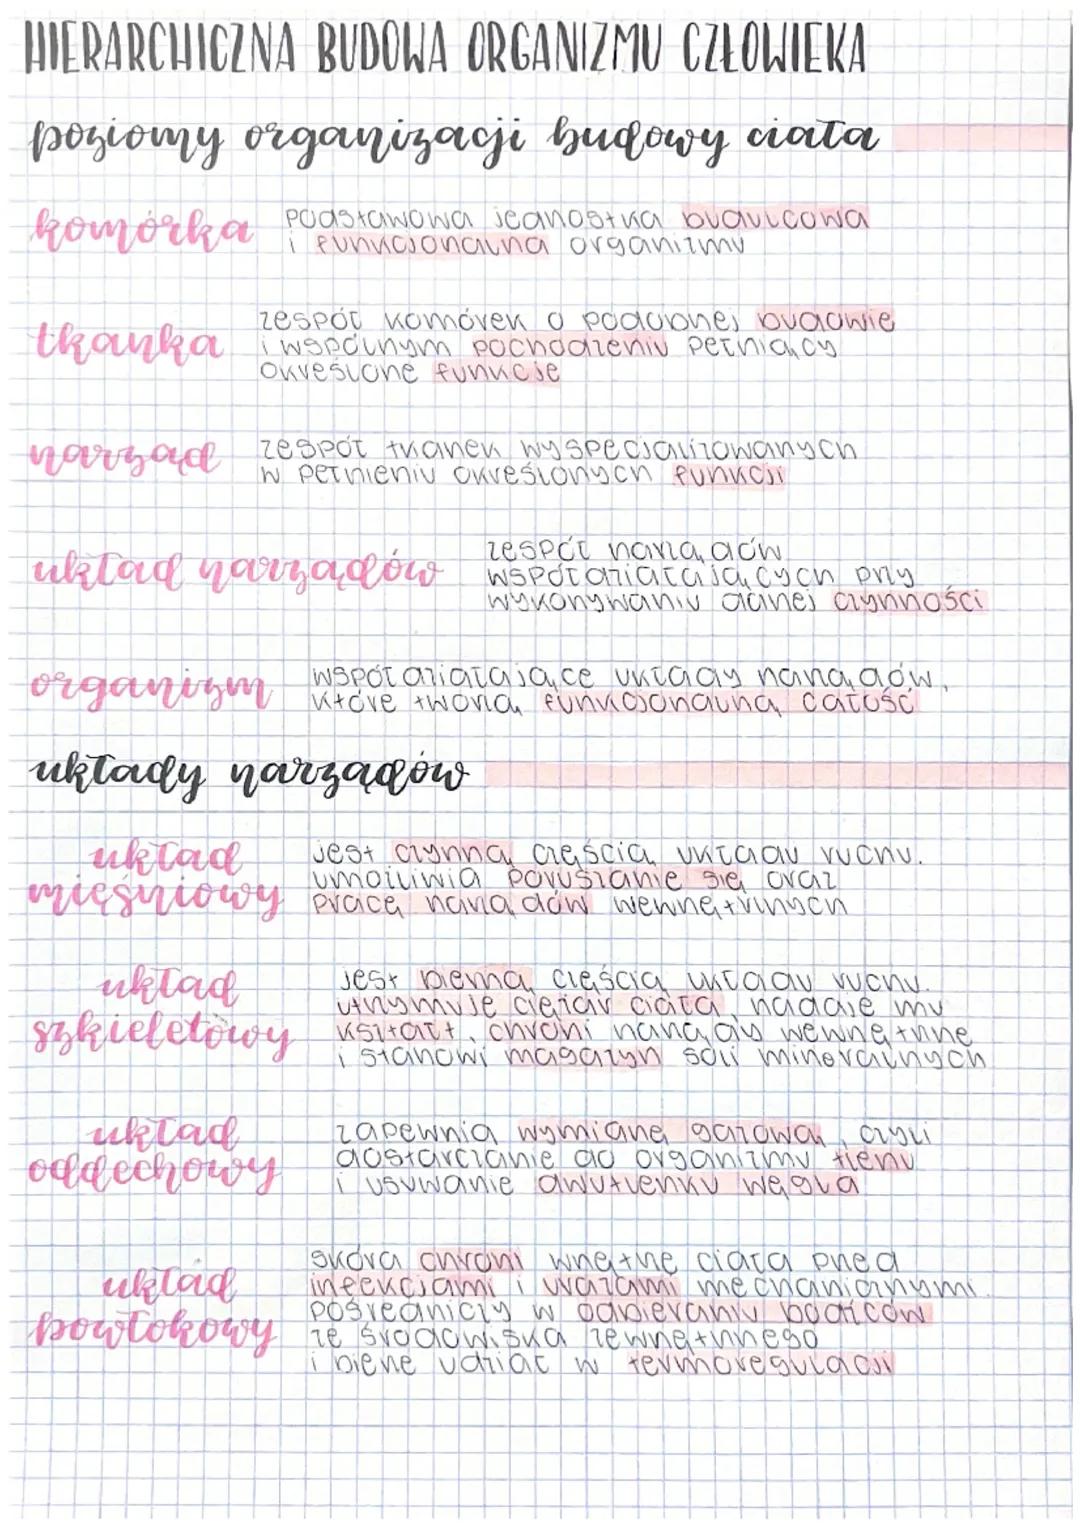 HIERARCHICZNA BUDOWA ORGANIZMU CZŁOWIEKA
poziomy organizacji budowy ciała
komórka
podstawowa jednostka budulcowa
i funkcjonalna organizmu
tkanka
zespół komórek o podobnej budowie
i wspólnym pochodzeniu pełniący
określone funkcje
narząd
zespół tkanek wyspecjalizowanych
w pełnieniu określonych funkcji
układ narządów
zespół narządów
współdziałających przy
wykonywaniu danej czynności
organizm
współdziałające układy narządów,
które tworzą funkcjonalną całość
układy narządów
układ
mięśniowy
jest czynną częścią układu ruchu.
umożliwia poruszanie się oraz
pracę narządów wewnętrznych
układ
szkieletowy
jest bierną częścią układu ruchu.
utrzymuje ciężar ciała, nadaje mu
kształt, chroni narządy wewnętrzne
i stanowi magazyn soli mineralnych
układ
oddechowy
zapewnia wymianę gazową, czyli
dostarczanie do organizmu tlenu
i usuwanie dwutlenku węgla
układ
powłokowy
skóra chroni wnętrze ciała przed
infekcjami i urazami mechanicznymi.
pośredniczy w odbieraniu bodźców
ze środowiska zewnętrznego
i bierze udział w termoregulacji